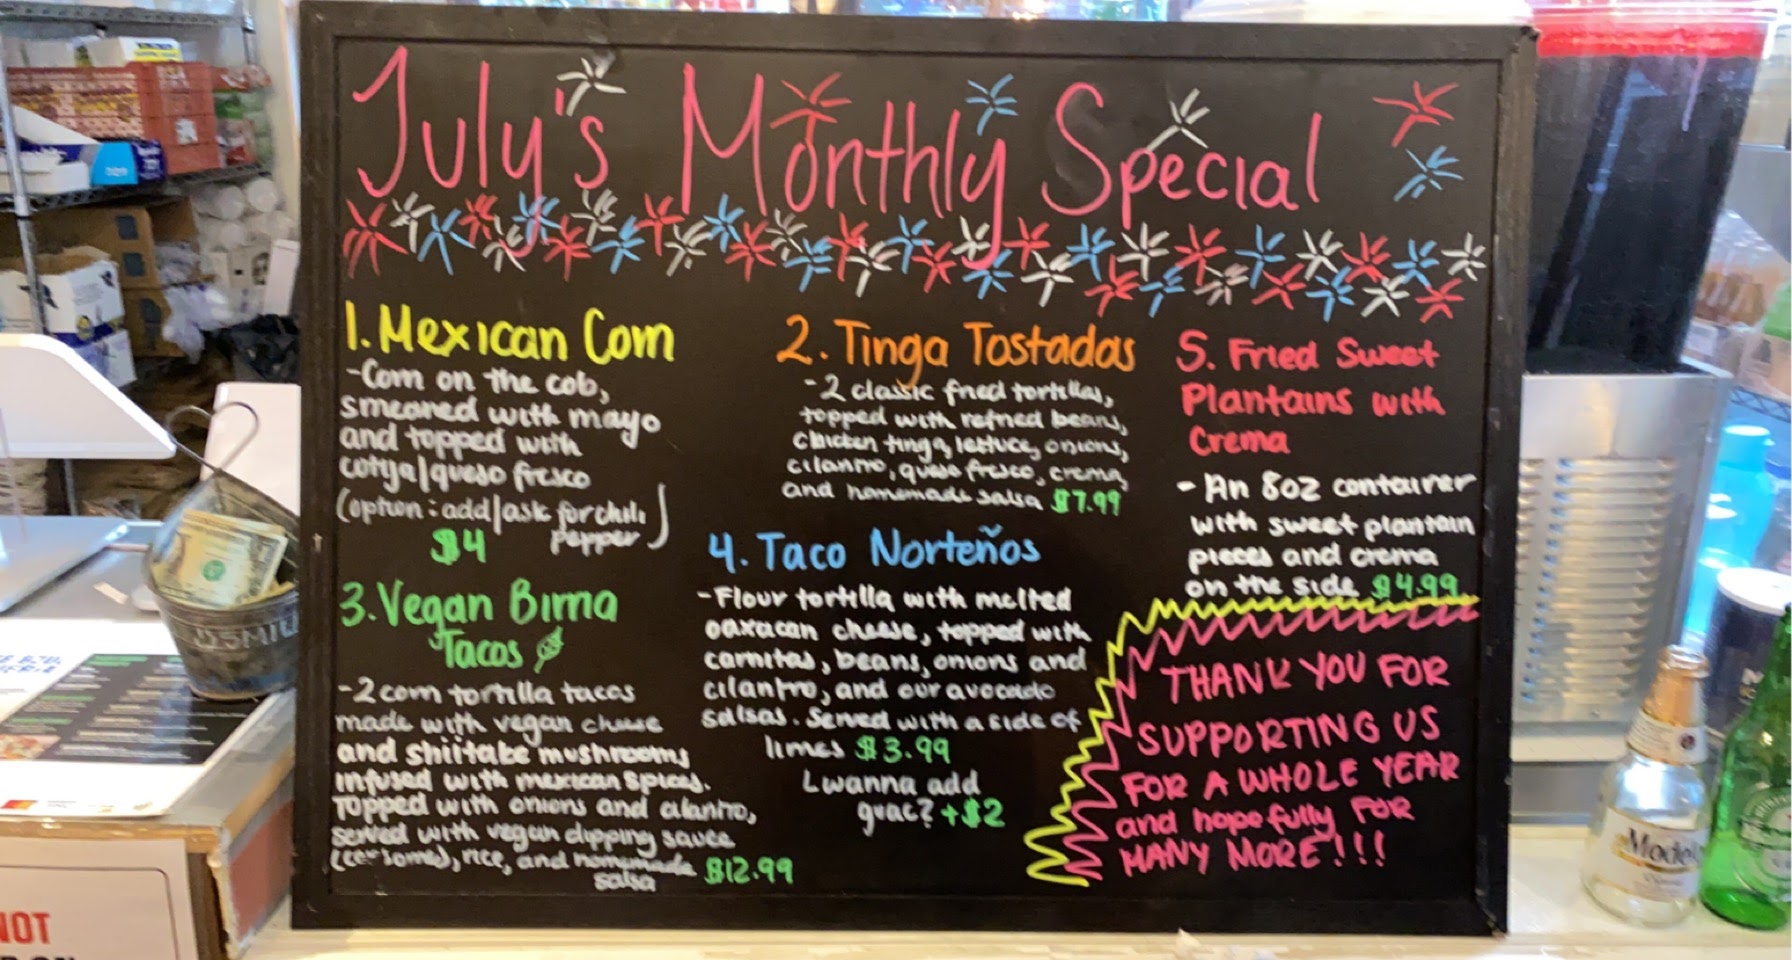 July's Monthly Special
1. Mexican Corn
-Corn on the cob,
smeared with mayo
and topped with
cotija/queso fresco
(option: add/ask for chili
pepper)
$4
2. Tinga Tostadas
-2 classic fried tortillas,
topped with refried beans,
chicken tinga, lettuce, onions,
cilantro, queso fresco, crema,
and homemade salsa $7.99
3. Vegan Birria
Tacos
-2 corn tortilla tacos
made with vegan cheese
and shiitake mushrooms
infused with mexican spices.
Topped with onions and cilantro,
served with vegan dipping sauce
(consome), rice, and homemade
salsa $12.99
4. Taco Norteños
-Flour tortilla with melted
oaxacan cheese, topped with
carnitas, beans, onions and
cilantro, and our avocado
salsas. Served with a side of
limes $3.99
Lwanna add
guac? +$2
5. Fried Sweet
Plantains with
Crema
- An 8oz container
with sweet plantain
pieces and crema
on the side $4.99
THANK YOU FOR
SUPPORTING US
FOR A WHOLE YEAR
and hopefully FOR
MANY MORE!!!
Modelo
NOT